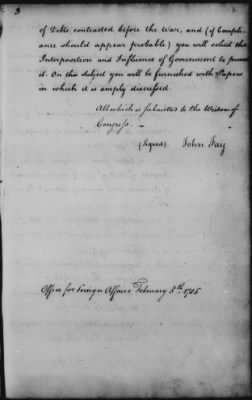 3
of Debts contracted before the War, and (if Compli-
ance should appear probable) you will solicit the
Interposition and Influence of Government to promote
it. On this subject you will be furnished with Papers
in which it is amply discussed
All which is submitted to the Wisdom of
Congress. —
(Signed) John Jay
Office for Foreign Affairs February 5th. 1785